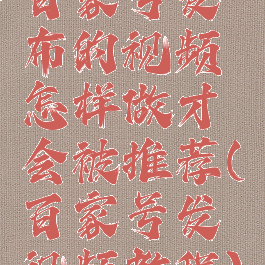 百家号发
布的视频
怎样做才
会被推荐(
百家号发
视频教账)